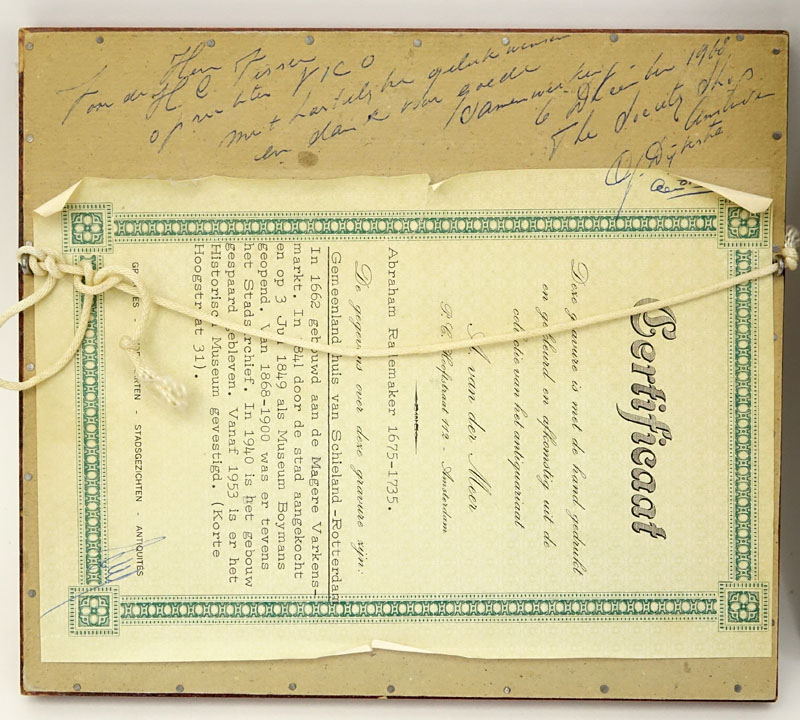 Voor den Heer
H C Visser
oprichter VICO
met hartelijke gelukwensen
en dank voor goede
samenwerking.
6 December 1968
The Society Shop
Amsterdam
Certificaat
Deze gravure is met de hand gedrukt
en gekleurd en afkomstig uit de
collectie van het antiquariaat
A. van der Meer
P.C. Hooftstraat 112 - Amsterdam
Abraham Rademaker 1675-1735.
De gegevens over deze gravure zijn:
Gemeenlandshuis van Schieland-Rotterdam
In 1662 gebouwd aan de Magere Varkens-
markt. In 1841 door de stad aangekocht
en op 3 Juli 1849 als Museum Boymans
geopend. Van 1868-1900 was er tevens
het Stadsarchief. In 1940 is het gebouw
gespaard gebleven. Vanaf 1953 is er het
Historisch Museum gevestigd. (Korte
Hoogstraat 31).
STADSGEZICHTEN - ANTIQUITÉS